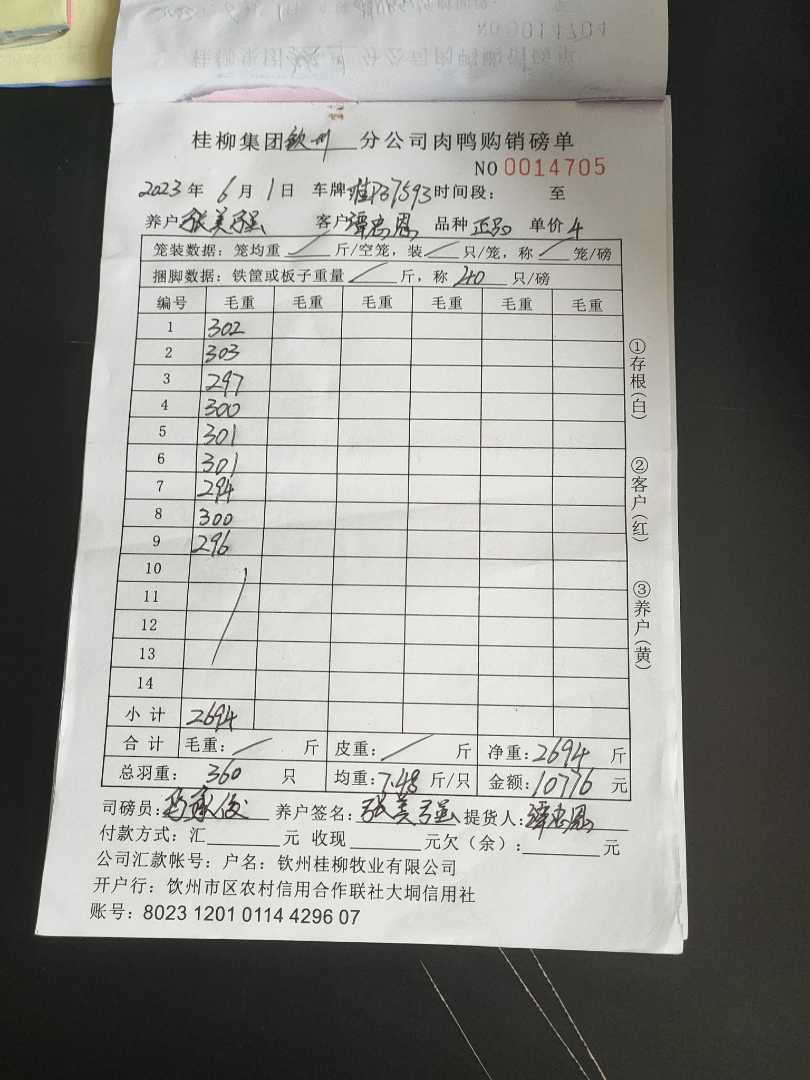 桂柳集团钦州分公司肉鸭购销磅单
NO 0014705
2023年6月1日 车牌 桂P37593 时间段： 至
养户 张美强 客户 谭忠恩 品种 正品 单价 4
笼装数据：笼均重 / 斤/空笼，装 / 只/笼，称 / 笼/磅
捆脚数据：铁筐或板子重量 / 斤，称 40 只/磅
编号 毛重 毛重 毛重 毛重 毛重 毛重
1 302
2 303
3 297
4 300
5 301
6 301
7 294
8 300
9 296
10
11
12
13
14
小计 2694
合计 毛重：/ 斤 皮重：/ 斤 净重：2694 斤
总羽重：360 只 均重：7.48 斤/只 金额：10776 元
司磅员： 养户签名：张美强 提货人：谭忠恩
付款方式：汇 元 收现 元欠（余）： 元
公司汇款帐号：户名：钦州桂柳牧业有限公司
开户行：钦州市区农村信用合作联社大垌信用社
账号：8023 1201 0114 4296 07
①存根（白）
②客户（红）
③养户（黄）